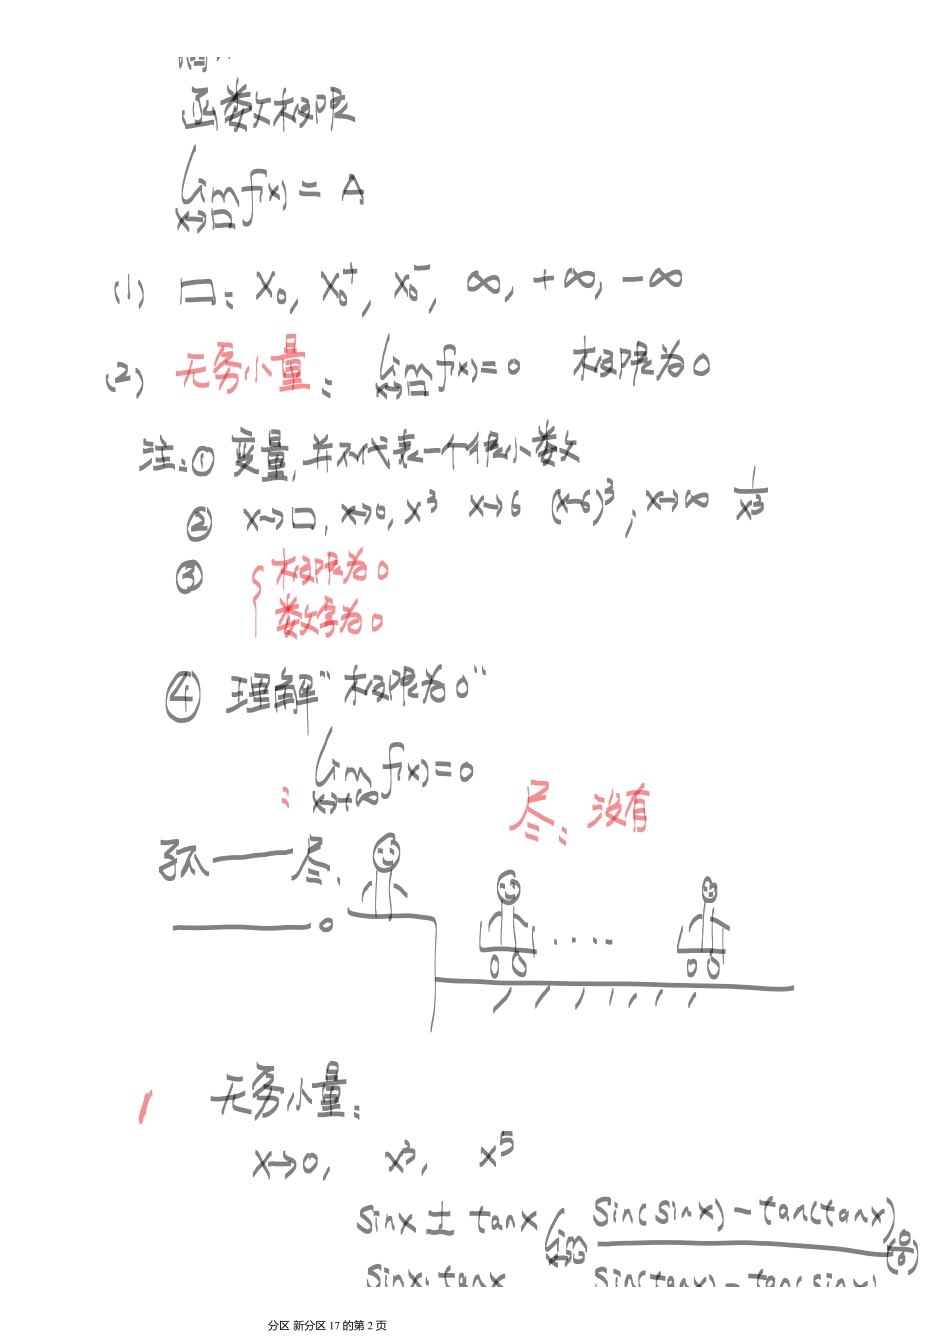 函数极限
lim f(x) = A
x→口
(1) 口: x₀, x₀⁺, x₀⁻, ∞, +∞, -∞
(2) 无穷小量: lim f(x) = 0 极限为0
x→口
注:① 变量,并不代表一个很小数
② x→口, x→0, x³ x→6 (x-6)³; x→∞ 1/x³
③ { 极限为0
数字为0
④ 理解"极限为0"
: lim f(x) = 0
x→+∞
尽: 没有
孤——尽.
无穷小量:
x→0, x³, x⁵
sinx ± tanx lim sin(sinx) - tan(tanx) (0/0)
sinx·tanx x→0 sin(tanx) - tan(sinx)
分区 新分区 17 的第 2 页